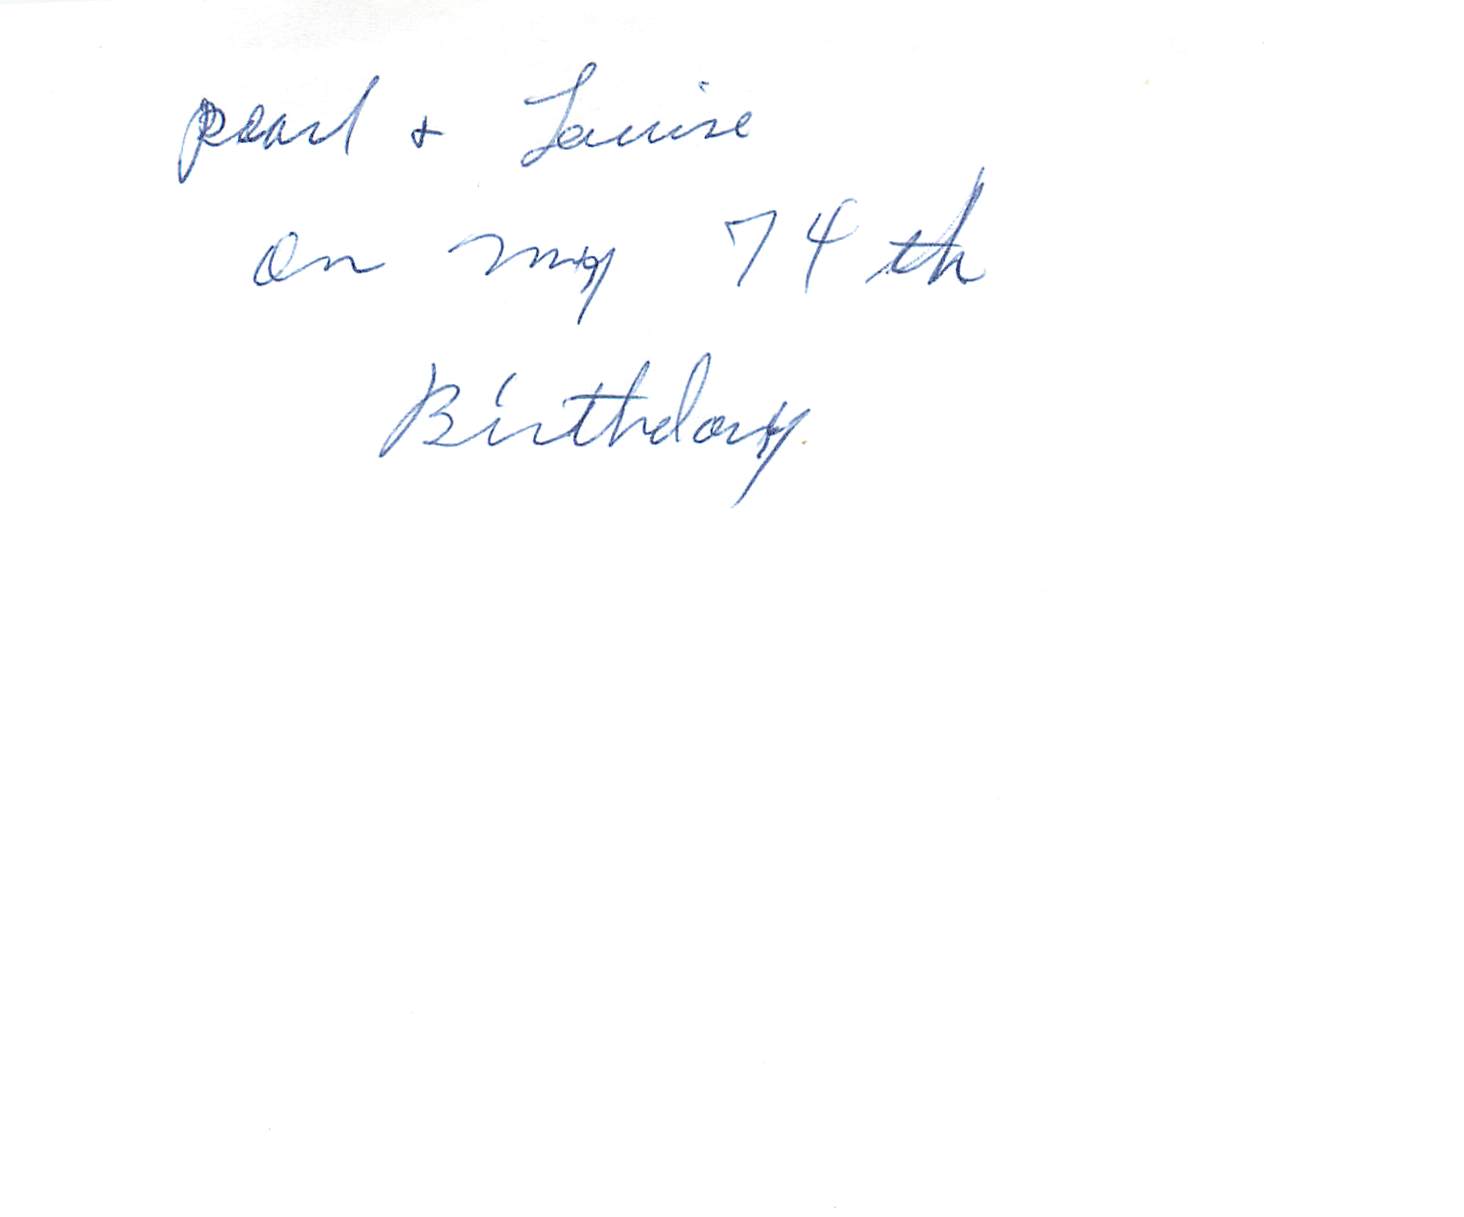 Pearl + Louise
on my 74th
Birthday